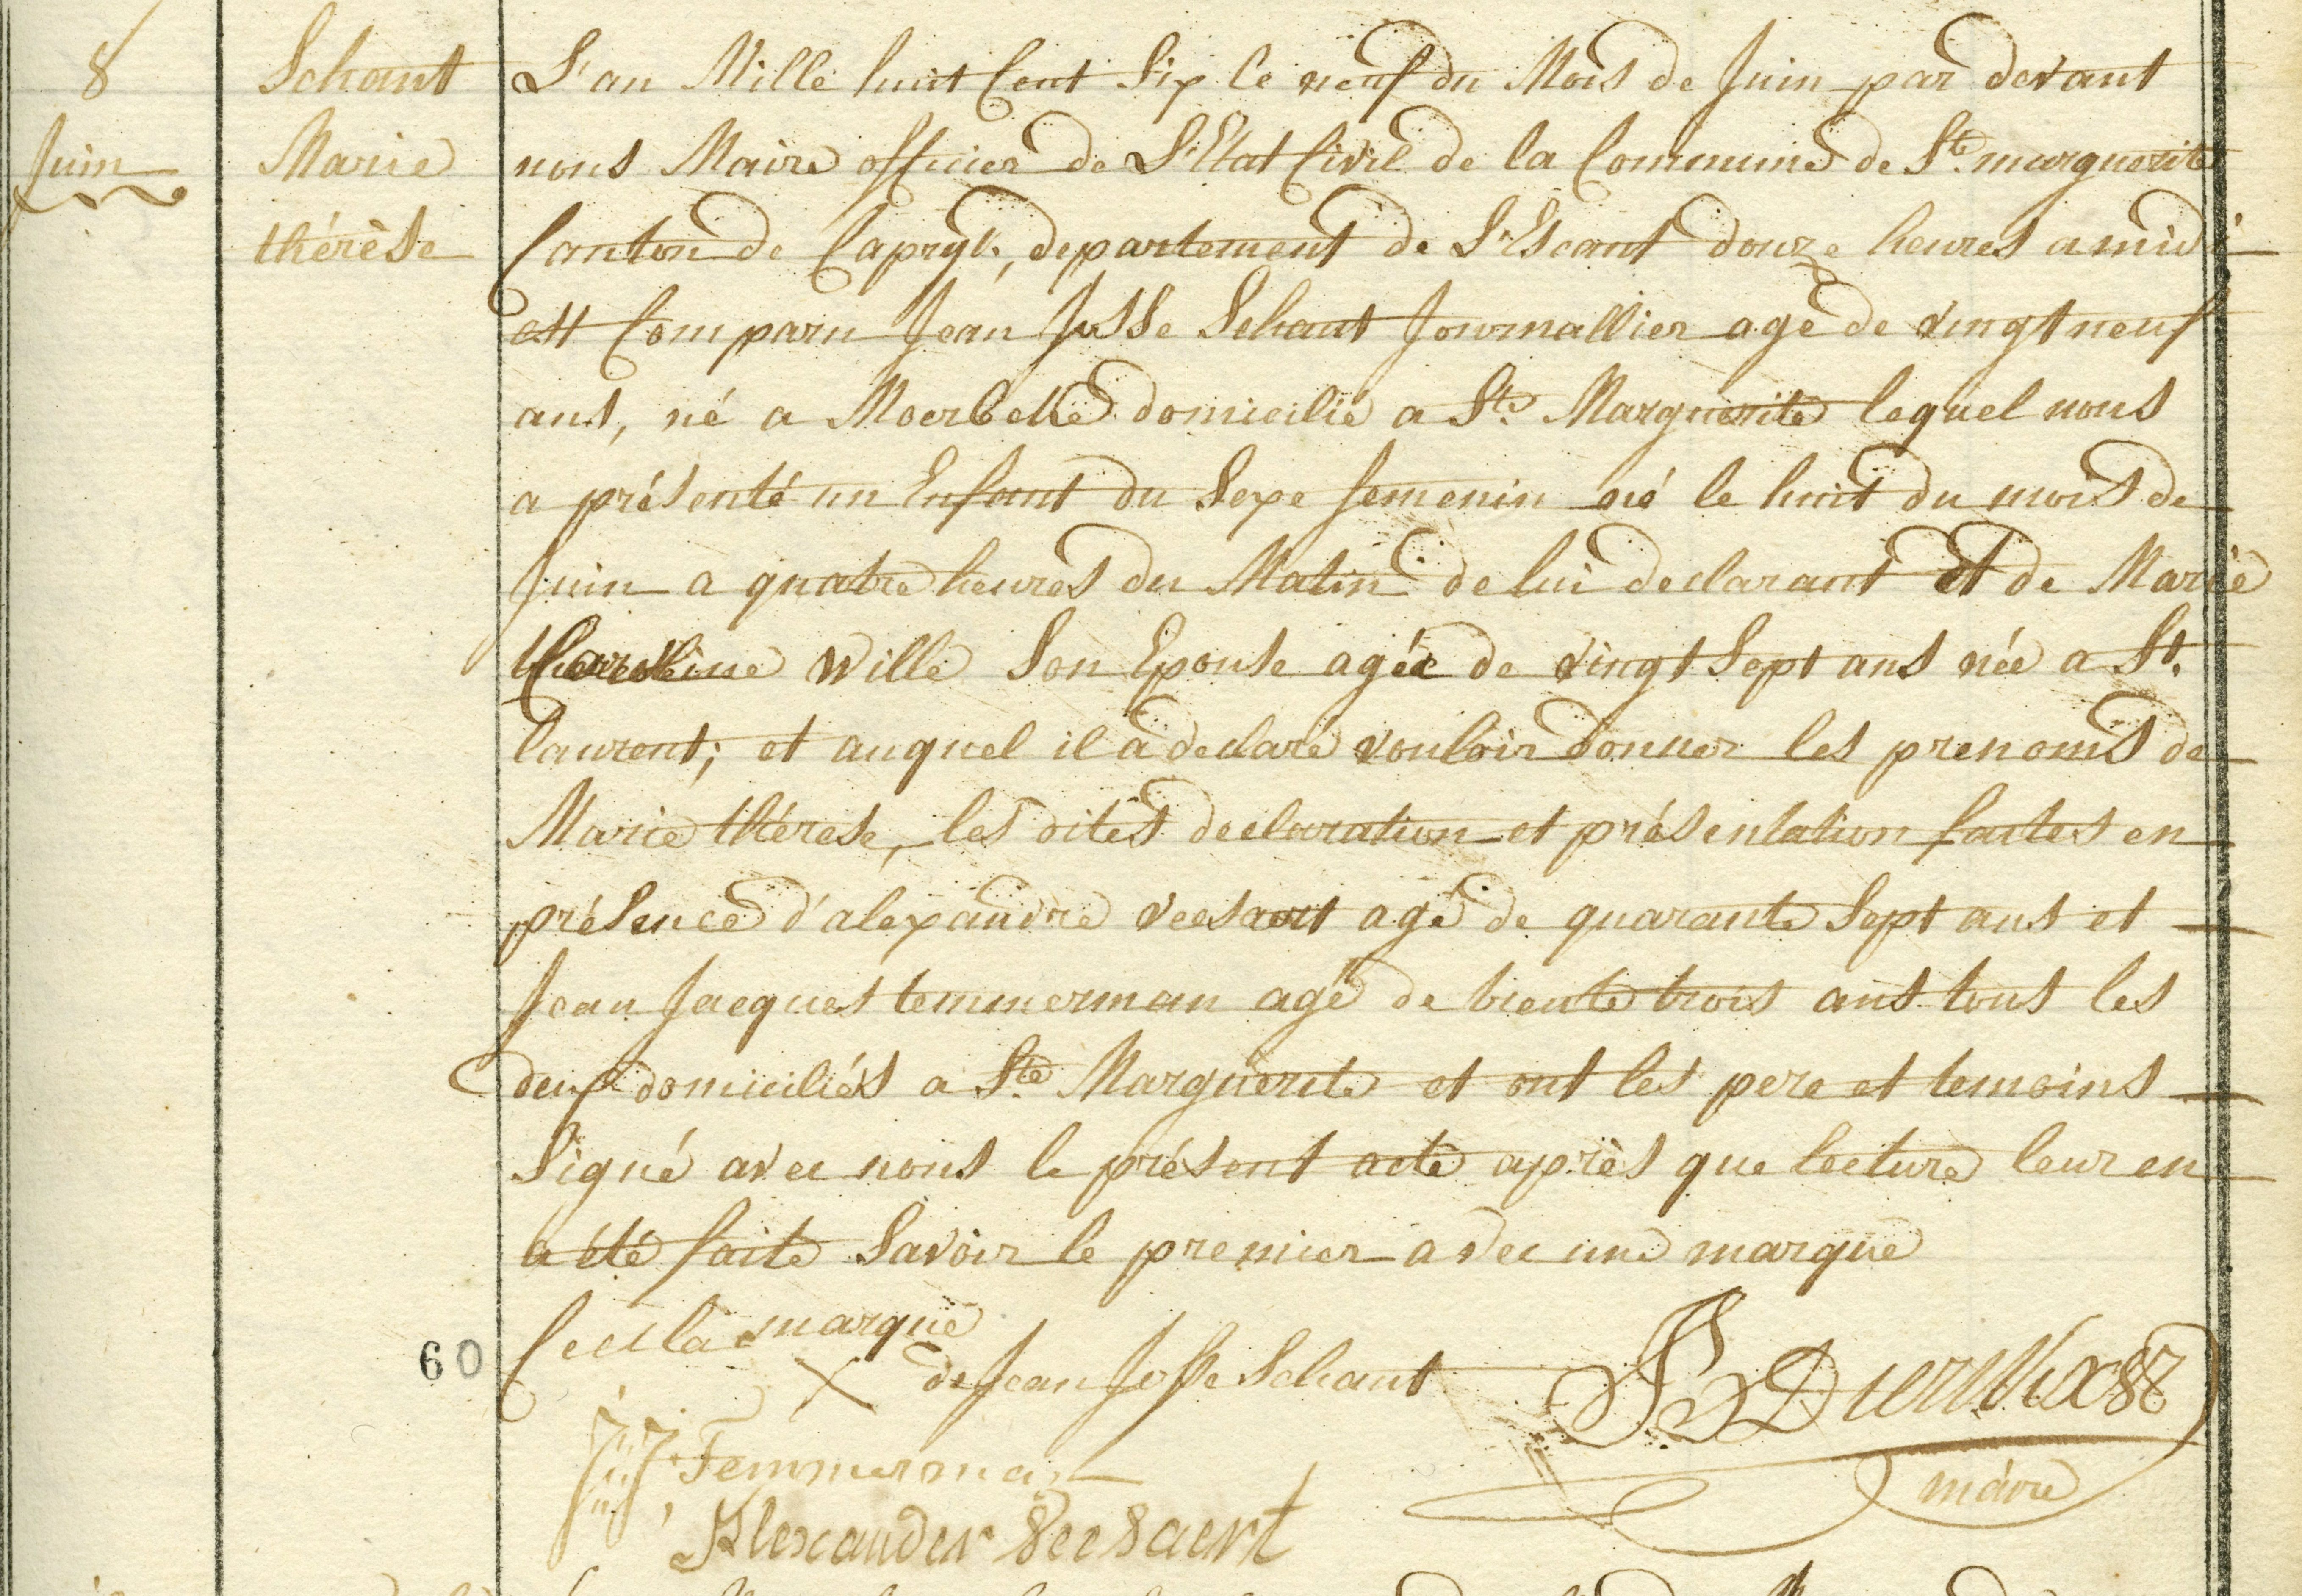 8
Juin
Schant
Marie
thérèse
L'an Mille huit Cent Six le neuf du Mois de Juin par devant
nous Maire officier de L'Etat Civil de la Commune de Ste. marguerite
Canton de Capryk, departement de L'Escaut douze heures a midi
est Comparu Jean Josse Schaut Journallier agé de vingt neuf
ans, né a Moerbeke domicilié a Ste. Marguerite lequel nous
a présenté un Enfant du Sexe femenin né le huit du mois de
Juin a quatre heures du Matin de lui declarant et de Marie
Wille Son Epouse agée de vingt Sept ans née a St.
laurent; et auquel il a declaré vouloir donner les prenoms de
Marie thérese, les dites declaration et présentation faites en
présence d'alexandre veesaert agé de quarante Sept ans et
Jean Jacques temmerman agé de trente trois ans tous les
deux domiciliés a Ste. Marguerite et ont les pere et temoins
Signé avec nous le présent acte après que lecture leur en
a été faite Savoir le premier avec une marque
Ceci la marque
X de Jean Josse Schaut
maire
60
JJ: Temmerman
Alexander Veesaert